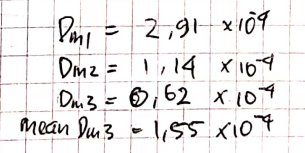 Dm1 = 2,91 × 10⁻⁴
Dm2 = 1,14 × 10⁻⁴
Dm3 = 0,62 × 10⁻⁴
mean Dm3 = 1,55 × 10⁻⁴